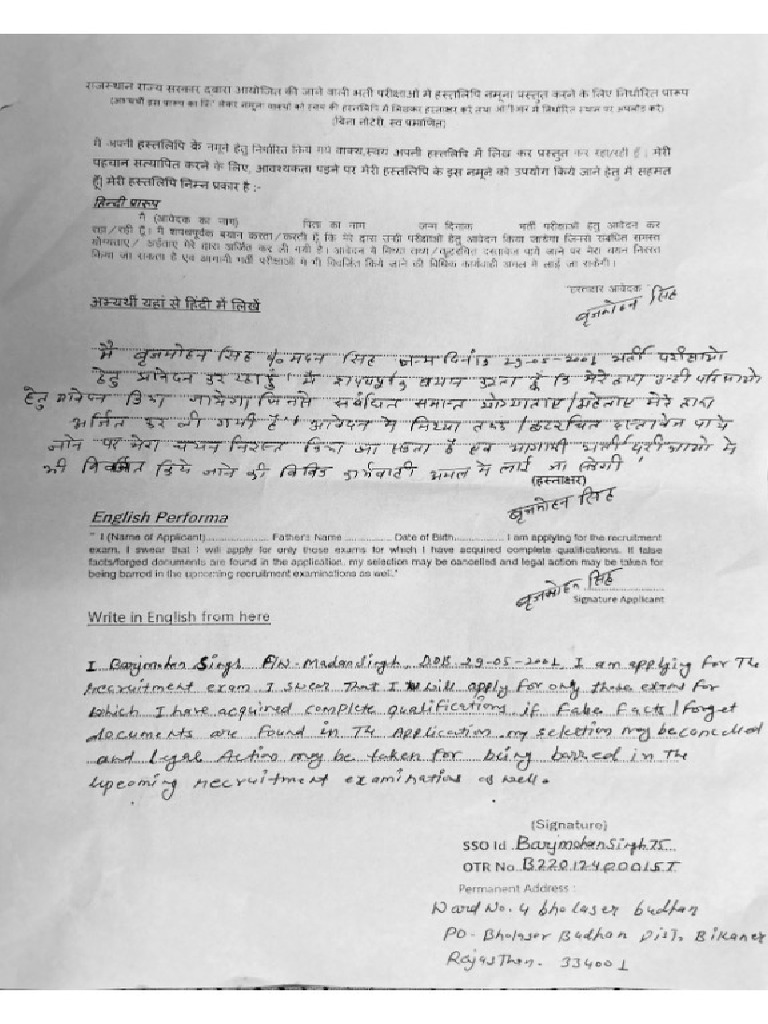 राजस्थान राज्य सरकार द्वारा आयोजित की जाने वाली भर्ती परीक्षाओं में हस्तलिपि नमूना प्रस्तुत करने के लिए निर्धारित प्रारूप
(बिना नोटरी, स्व प्रमाणित)
मैं अपनी हस्तलिपि के नमूने हेतु निर्धारित किये गये वाक्य,स्वयं अपनी हस्तलिपि में लिख कर प्रस्तुत कर रहा/रही हैं। मेरी
पहचान सत्यापित करने के लिए, आवश्यकता पड़ने पर मेरी हस्तलिपि के इस नमूने को उपयोग किये जाने हेतु में सहमत
हूँ। मेरी हस्तलिपि निम्न प्रकार है :-
हिन्दी प्रारूप
मैं (आवेदक का नाम) पिता का नाम जन्म दिनांक भर्ती परीक्षाओं हेतु आवेदन कर
रहा/रही हूँ। मैं शपथपूर्वक बयान करता/करती हूँ कि मेरे द्वारा उन्हीं परीक्षाओं हेतु आवेदन किया जायेगा जिनसे संबंधित समस्त
योग्यताएं/ अर्हताएं मेरे द्वारा अर्जित कर ली गयी है। आवेदन में मिथ्या तथ्य/कूटरचित दस्तावेज पाये जाने पर मेरा चयन निरस्त
किया जा सकता है एवं आगामी भर्ती परीक्षाओं में भी विवर्जित किये जाने की विधिक कार्यवाही अमल में लाई जा सकेगी।
हस्ताक्षर आवेदक
बृजमोहन सिंह
अभ्यर्थी यहां से हिंदी में लिखें
मैं बृजमोहन सिंह मदन सिंह जन्म दिनांक 29-05-2001 भर्ती परीक्षाओ
हेतु आवेदन कर रहा हुँ। मैं शपथपूर्वक बयान करता हूँ कि मेरे द्वारा उन्ही परीक्षाओ
हेतु आवेदन किया जायेगा जिनसे संबंधित समस्त योग्यताएं/अर्हताए मेरे द्वारा
अर्जित कर ली गयी है। आवेदन में मिथ्या तथ्य/कुटरचित दस्तावेज पाये
जाने पर मेरा चयन निरस्त किया जा सकता है एवं आगामी भर्ती परीक्षाओ में
भी विवर्जित किये जाने की विधिक कार्यवाही अमल में लाई जा सकेगी
(हस्ताक्षर)
बृजमोहन सिंह
English Performa
" I (Name of Applicant)............... Father's Name ............... Date of Birth............... I am applying for the recruitment
exam. I swear that I will apply for only those exams for which I have acquired complete qualifications. If false
facts/forged documents are found in the application, my selection may be cancelled and legal action may be taken for
being barred in the upcoming recruitment examinations as well."
बृजमोहन सिंह
Signature Applicant
Write in English from here
I Barjmohan Singh F/N- Madansingh, DOB 29-05-2001 I am applying For The
recruitment exam I swear That I will apply for only those exams for
which I have acquired complete qualifications if False Facts/Forget
documents are found in The Application my selection may be concelled
and legal Action may be taken for being barred in The
upcoming recruitment examination as well.
(Signature)
SSO Id BarjmohanSingh75
OTR No B220124000157
Permanent Address :
Ward No. 4 bholaser budhan
PO- Bholaser Budhan Dist. Bikaner
Rajasthan- 334001